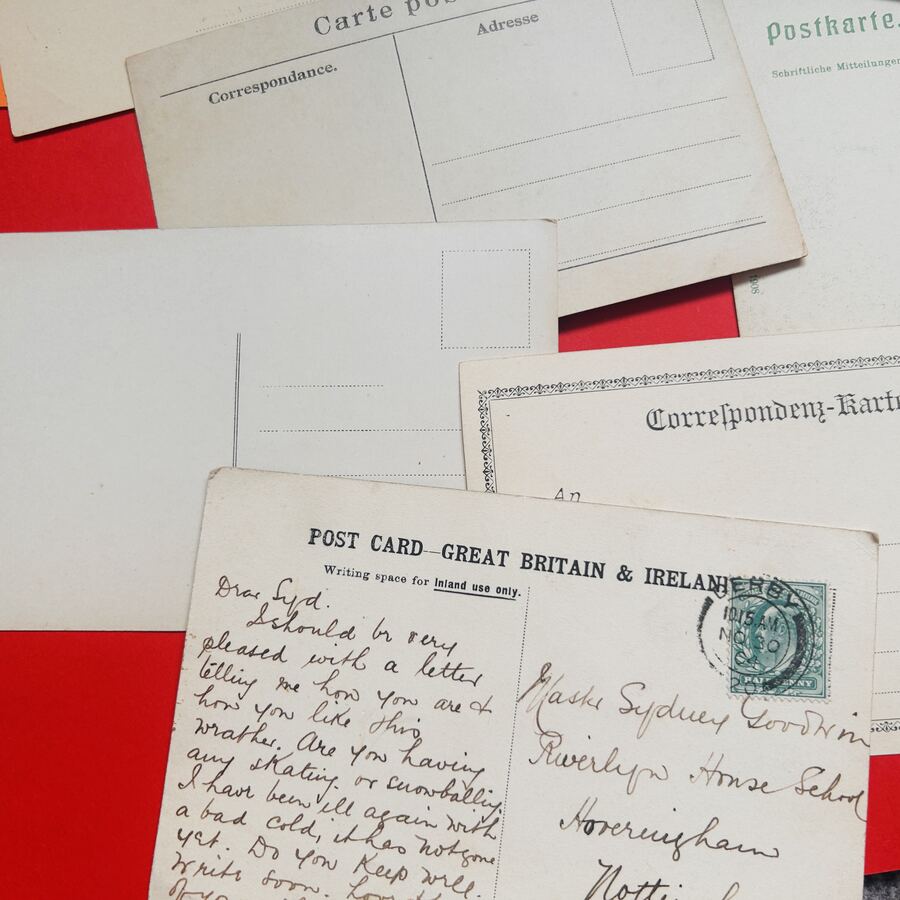 Carte pos
Correspondance.
Adresse
Postkarte.
Schriftliche Mitteilungen
1908
Correspondenz-Karte
An
POST CARD—GREAT BRITAIN & IRELAN
Writing space for Inland use only.
Dear Syd.
I should be very
pleased with a letter
telling me how you are &
how you like this
weather. Are you having
any skating or snowballing
I have been ill again with
a bad cold, it has not gone
yet. Do you keep well.
Write soon.
DERBY
10.15 AM
NO 30
04
HALFPENNY
Master Sydney Goodwin
Riverlyn House School
Hoveringham